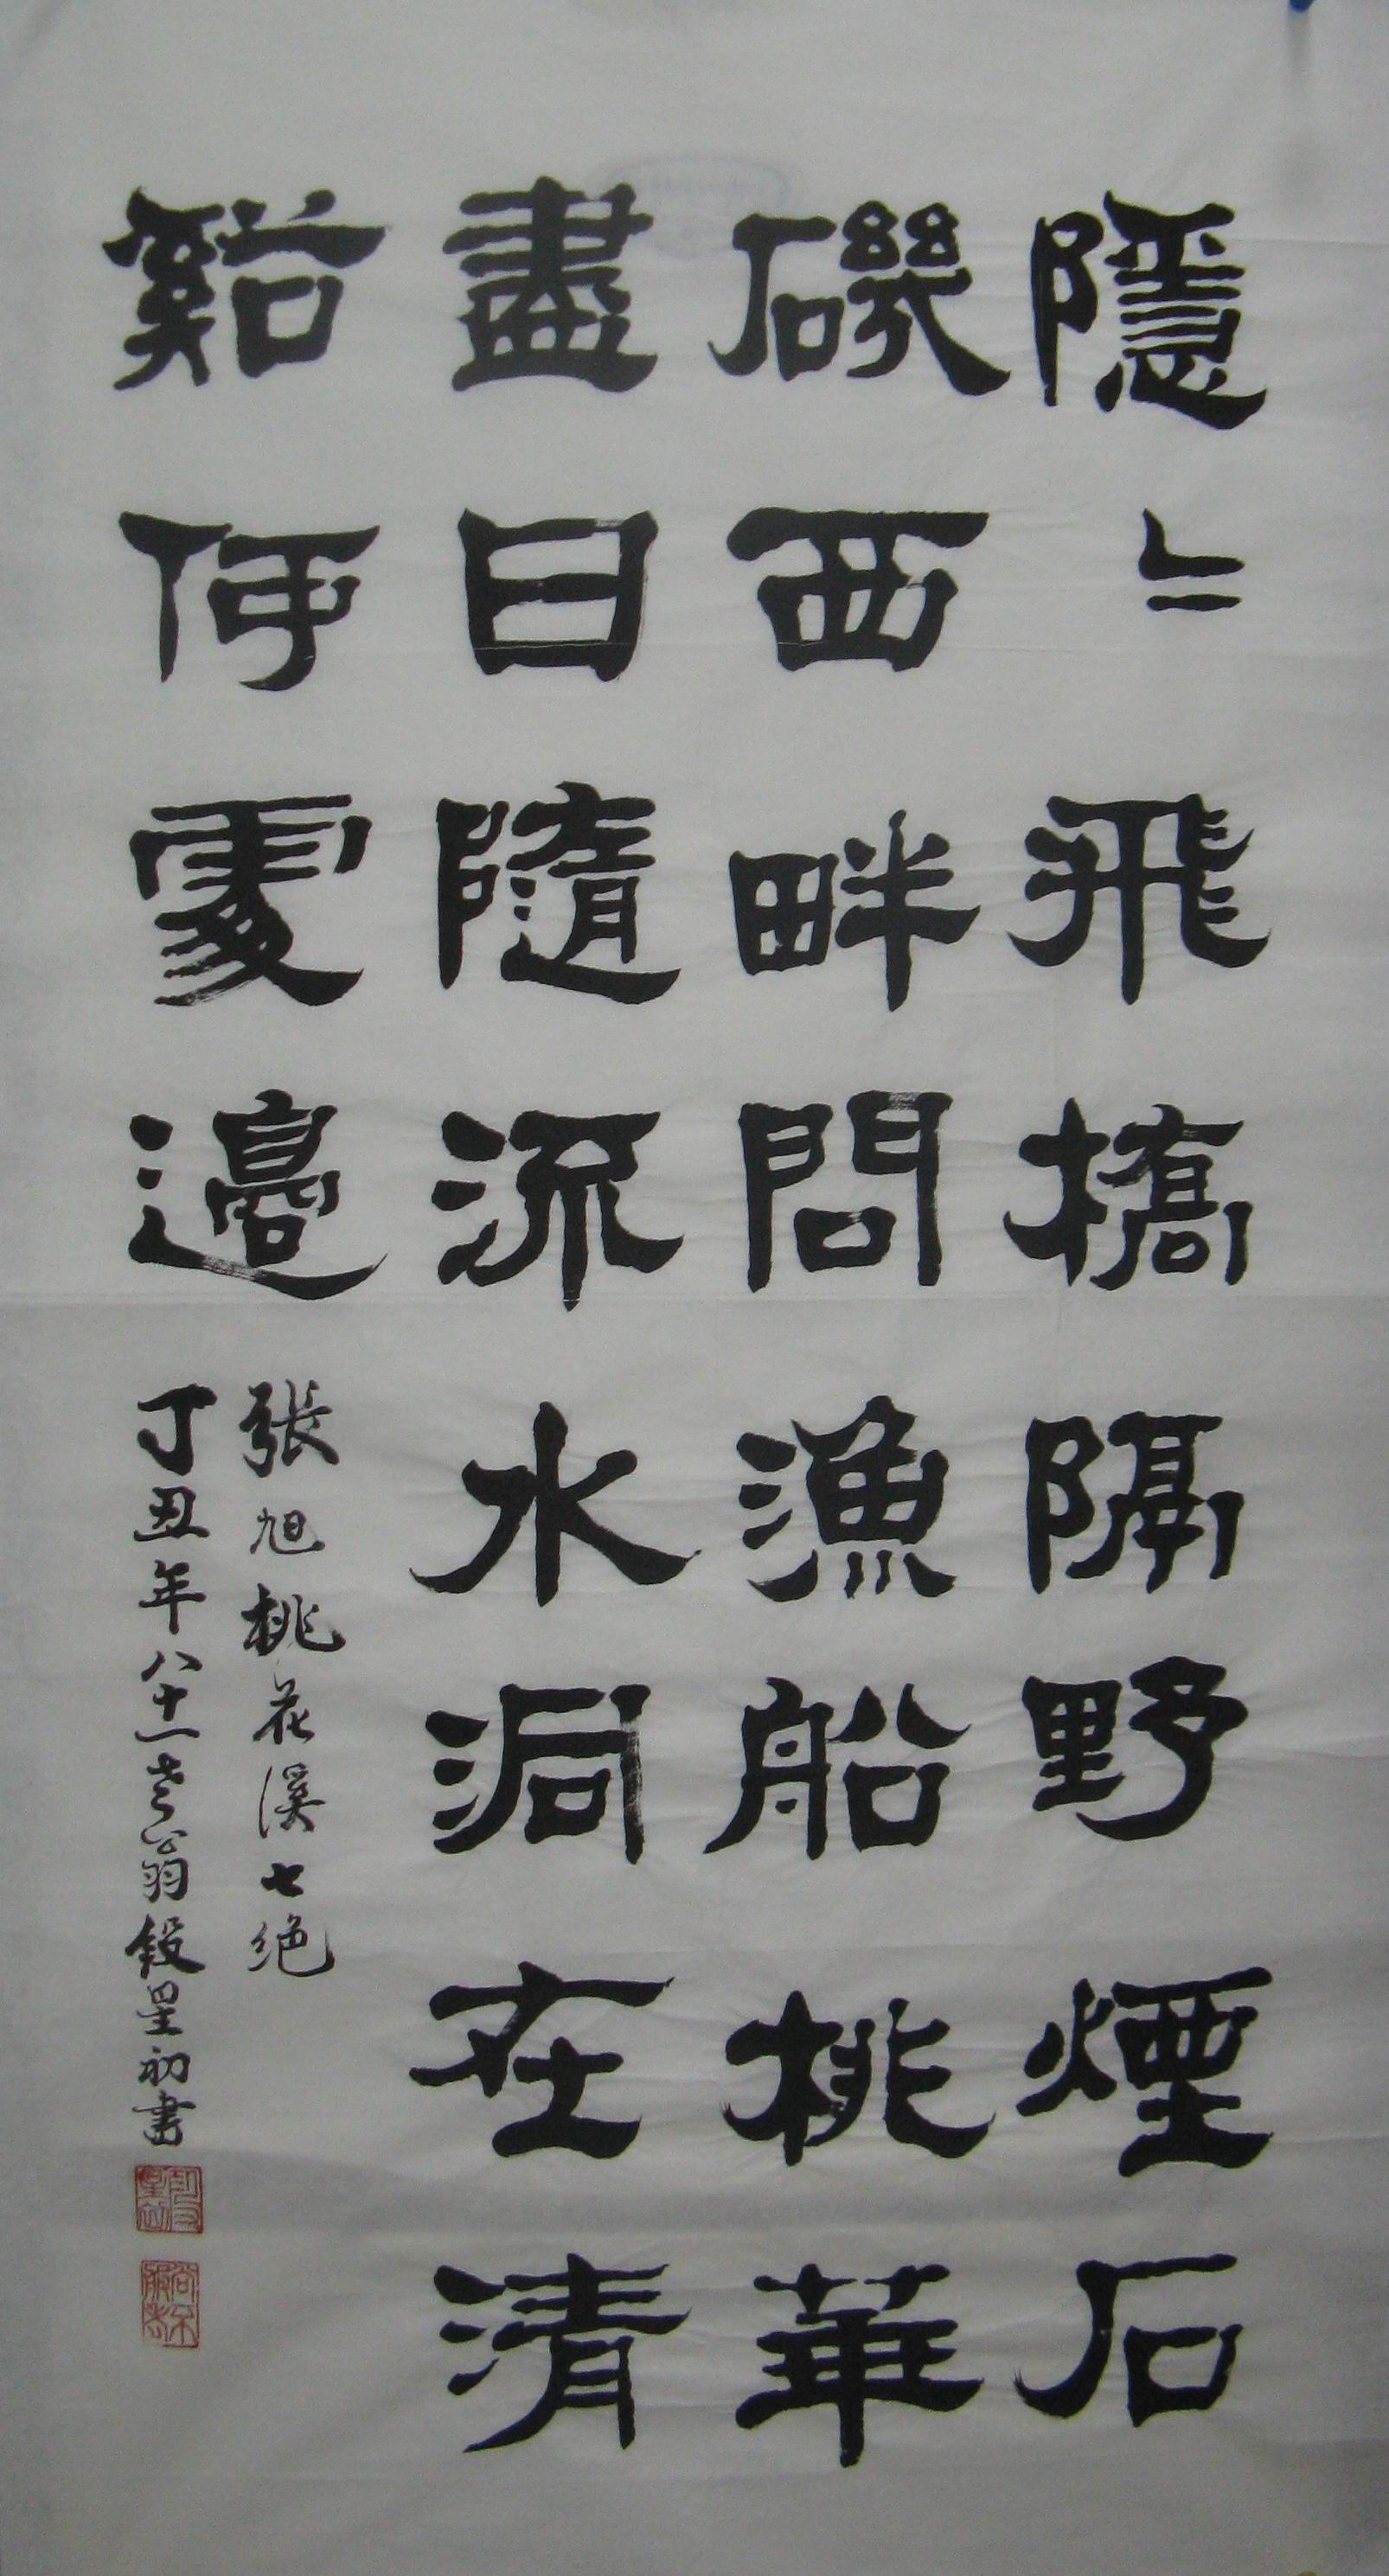 隱〻飛橋隔野煙石
磯西畔問漁船桃華
盡日隨流水洞在清
谿何處邊
張旭桃花溪七绝
丁丑年八十一老翁段星初書